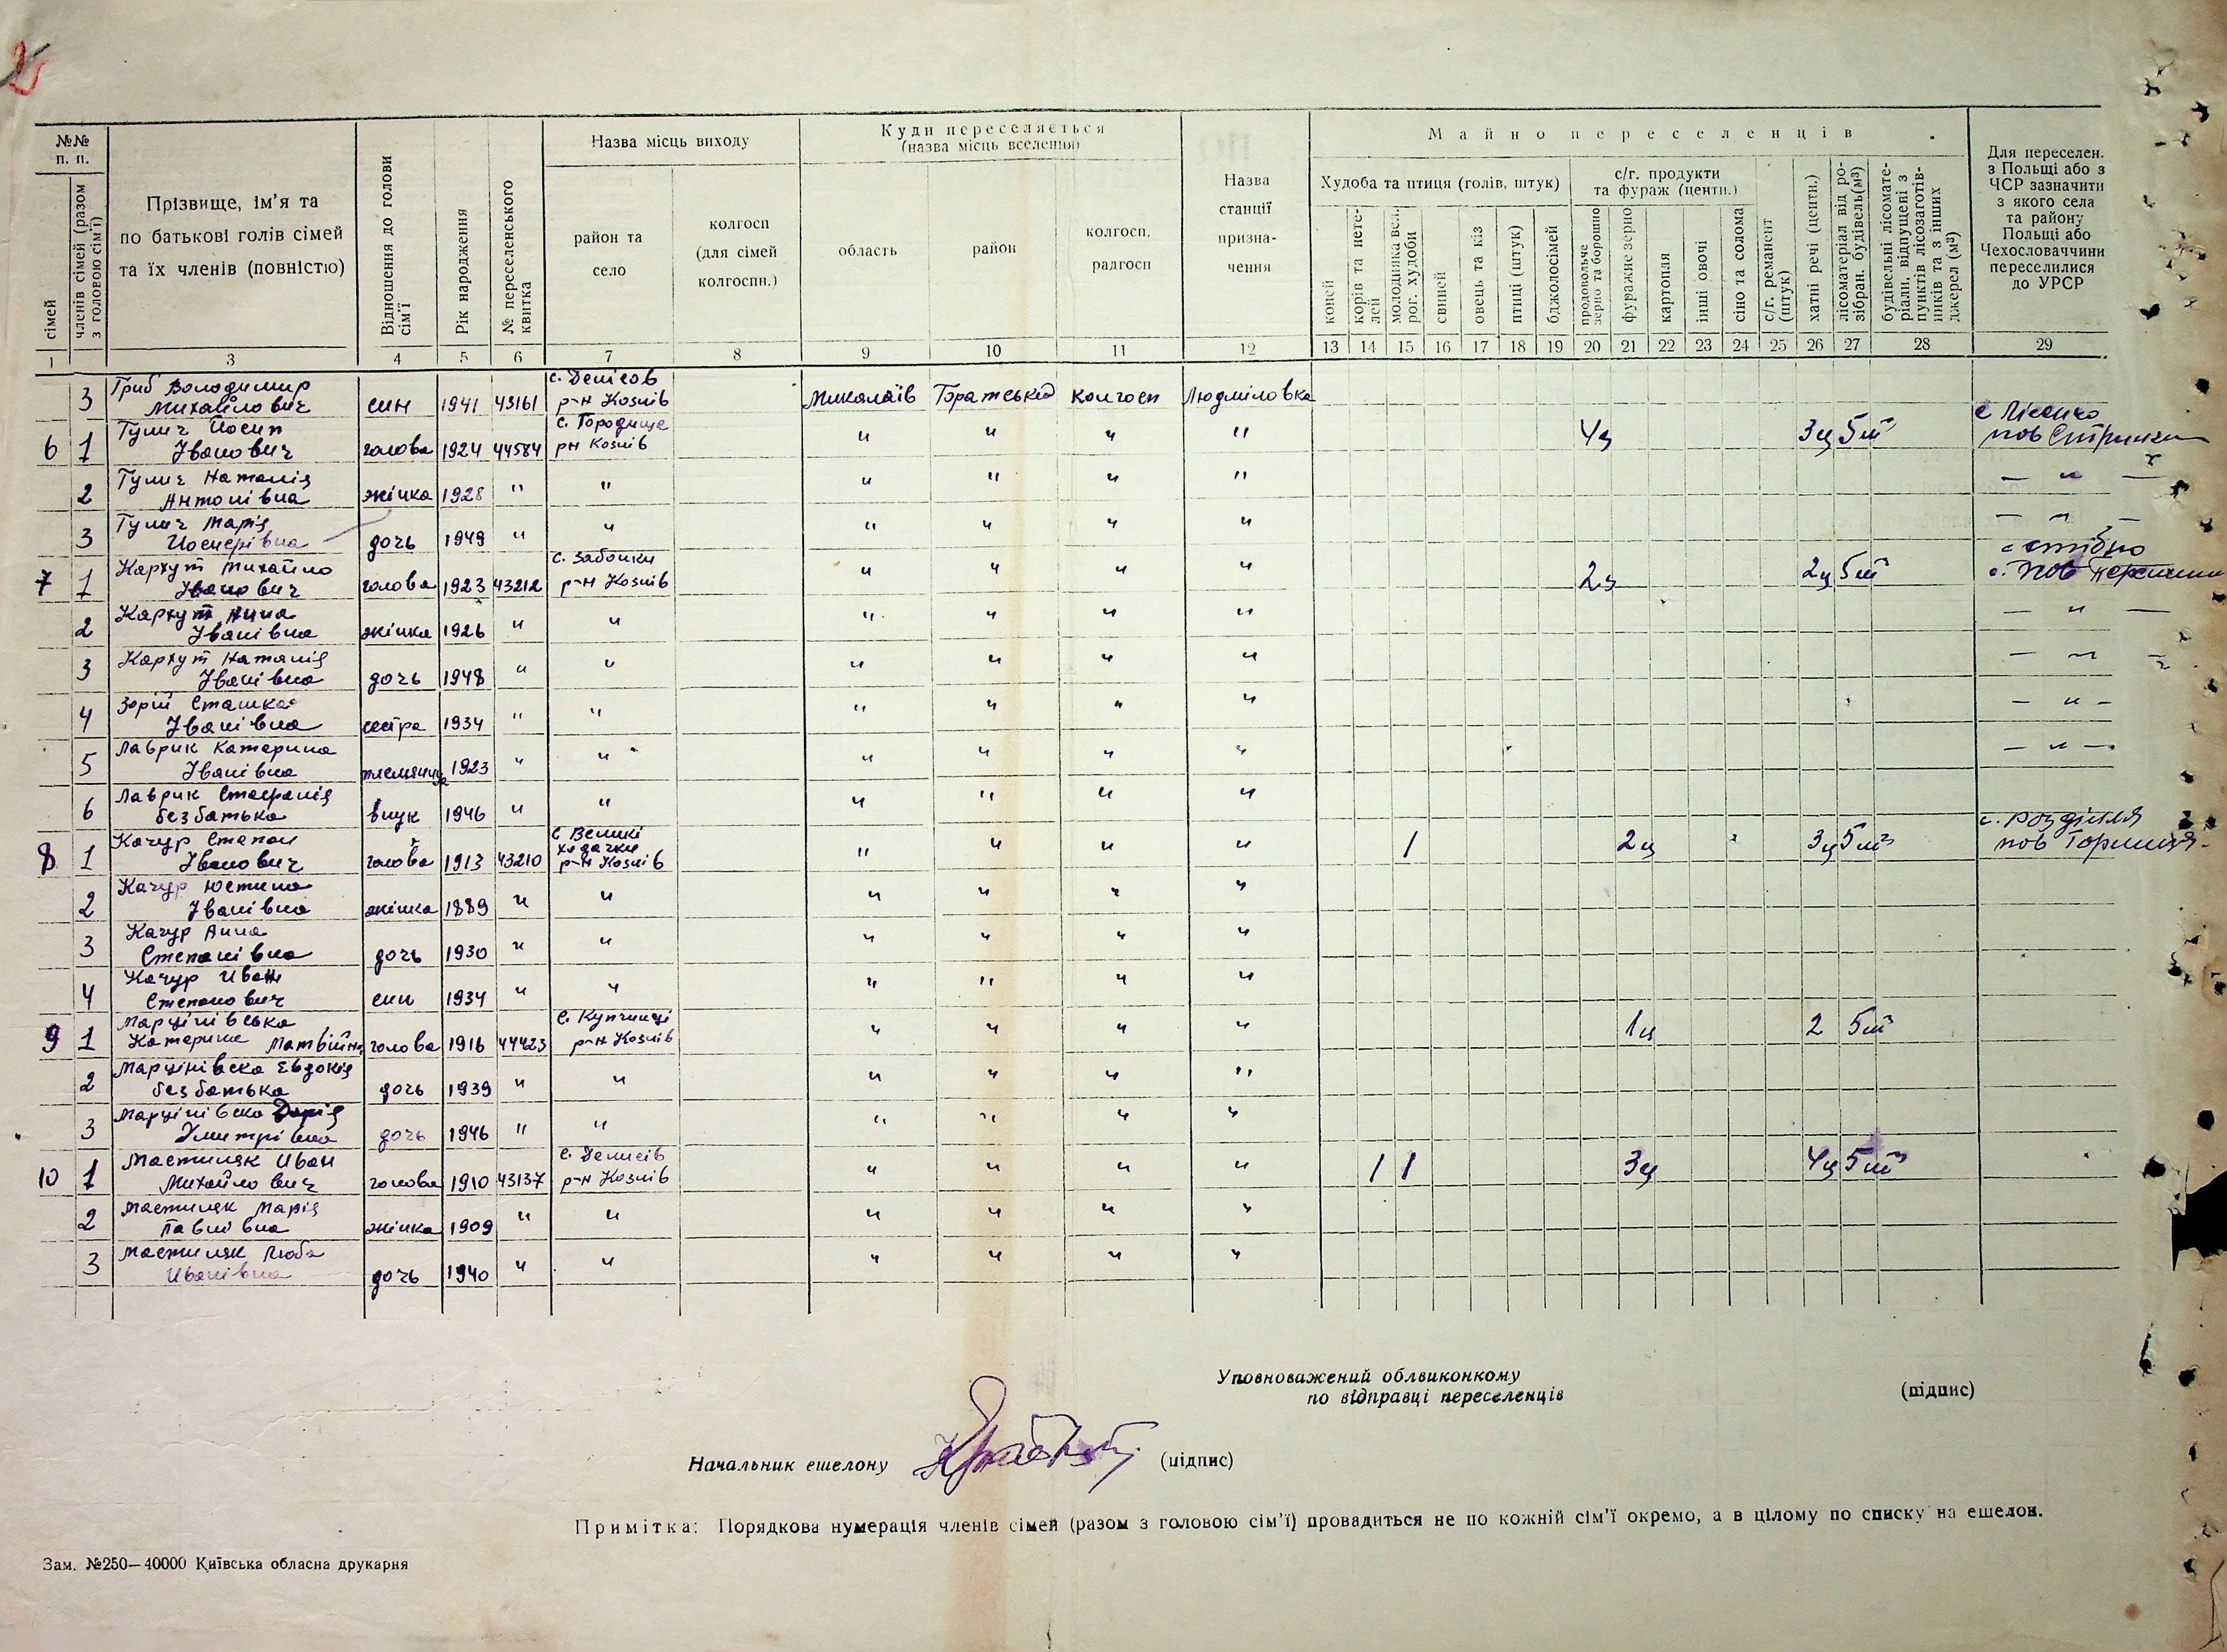 №№
п. п.
сімей
членів сімей (разом
з головою сім'ї)
Прізвище, ім'я та
по батькові голів сімей
та їх членів (повністю)
Відношення до голови
сім'ї
Рік народження
№ переселенського
квитка
Назва місць виходу
район та
село
колгосп
(для сімей
колгоспн.)
Куди переселяється
(назва місць вселення)
область
район
колгосп,
радгосп
Назва
станції
призна-
чення
Майно переселенців
Худоба та птиця (голів, штук)
коней
корів та нете-
лей
молодняка вел.
рог. худоби
свиней
овець та кіз
птиці (штук)
бджолосімей
с/г. продукти
та фураж (центн.)
продовольче
зерно та борошно
фуражне зерно
картопля
інші овочі
сіно та солома
с/г. реманент
(штук)
хатні речі (центн.)
лісоматеріал від ро-
зібран. будівель(м³)
будівельні лісомате-
ріали, відпущені з
пунктів лісозаготів-
ників та з інших
джерел (м³)
Для переселен.
з Польщі або з
ЧСР зазначити
з якого села
та району
Польщі або
Чехословаччини
переселилися
до УРСР
1 3 4 5 6 7 8 9 10 11 12 13 14 15 16 17 18 19 20 21 22 23 24 25 26 27 28 29
3 Гриб Володимир Михайлович син 1941 43161 с. Денісов р-н Козлів Миколаїв Братський Колгосп Людміловка
6 1 Гулич Йосип Іванович голова 1924 44584 с. Городище рн Козлів " " " " 4ц 3ц 5м³
2 Гулич Наталія Антонівна жінка 1928 " " " " " " — " —
3 Гулич Марія Йосиерівна дочь 1949 " " " " " " — " —
7 1 Кархут Михайло Іванович голова 1923 43212 р-н Козлів " " " " 2ц 2ц 5м³
2 Кархут Анна Іванівна жінка 1926 " " " " " " — " —
3 Кархут Наталія Іванівна дочь 1948 " " " " " " — " —
4 Зорій Сташка Іванівна сестра 1934 " " " " " " — " —
5 Лаврик Катерина Іванівна племяниця 1923 " " " " " " — " —
6 Лаврик Стефанія без батька внук 1946 " " " " " "
8 1 Качур Степан Іванович голова 1913 43210 с Великі ходачки р-н Козлів " " " " 1 2ц 3ц 5м³ с. Розділля пов Горлиця
2 Качур Юстина Іванівна жінка 1889 " " " " " "
3 Качур Анна Степанівна дочь 1930 " " " " " "
4 Качур Иван Степанович син 1934 " " " " " "
9 1 Марцінівська Катерина Матвіївна голова 1916 44423 с. Купчинці р-н Козлів " " " " 1ц 2 5м³
2 Марцінівска Евдокія без батька дочь 1939 " " " " " "
3 Марцінівска Дарія Дмитрівна дочь 1946 " " " " " "
10 1 Мастиляк Иван Михайлович голова 1910 43137 с. Денисів р-н Козлів " " " " 1 1 3ц 4ц 5м³
2 Мастиляк Марія Павлівна жінка 1909 " " " " " "
3 Мастиляк Люба Иванівна дочь 1940 " " " " " "
Уповноважений облвиконкому
по відправці переселенців
(підпис)
Начальник ешелону
(підпис)
Примітка: Порядкова нумерація членів сімей (разом з головою сім'ї) провадиться не по кожній сім'ї окремо, а в цілому по списку на ешелон.
Зам. №250—40000 Київська обласна друкарня